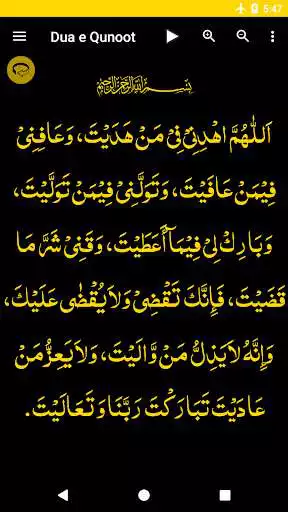 5:47
Dua e Qunoot
بِسْمِ اللّٰهِ الرَّحْمٰنِ الرَّحِيْمِ
اَللّٰهُمَّ اهْدِنِيْ فِيْ مَنْ هَدَيْتَ، وَعَافِنِيْ
فِيْمَنْ عَافَيْتَ، وَتَوَلَّنِيْ فِيْمَنْ تَوَلَّيْتَ،
وَبَارِكْ لِيْ فِيْمَاۤ أَعَطَيْتَ، وَقَنِيْ شَرَّ مَا
قَضَيْتَ، فَاِنَّكَ تَقْضِيْ وَلَايُقْضٰى عَلَيْكَ،
وَإِنَّهُ لَايَذِلُّ مَنْ وَّالَيْتَ، وَلَايَعِزُّ مَنْ
عَادَيْتَ تَبَارَكْتَ رَبَّنَا وَتَعَالَيْتَ.